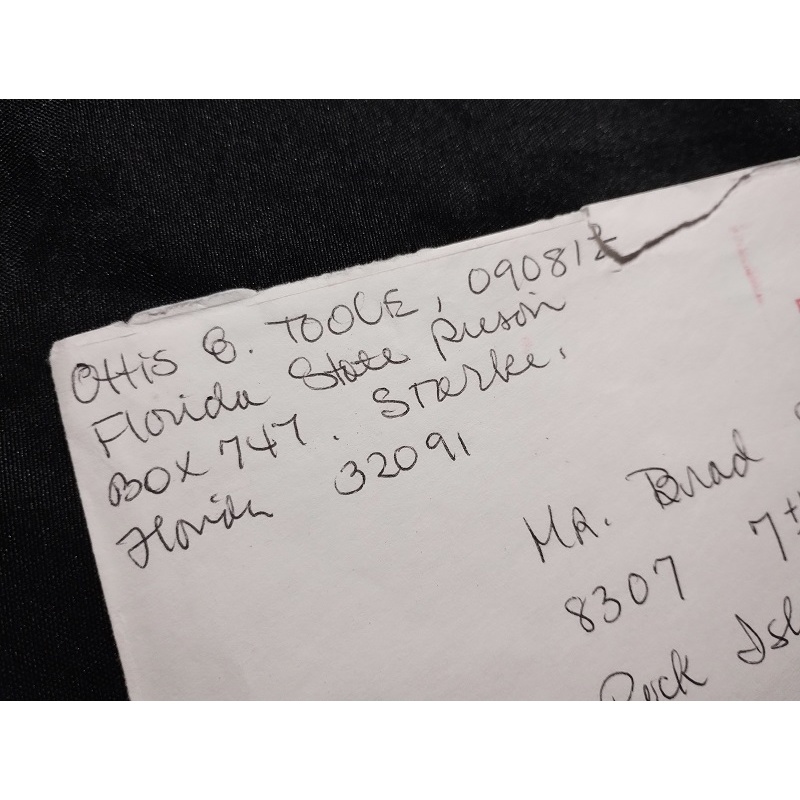 Ottis E. TOOLE, 090812
Florida State Prison
BOX 747. Starke.
Florida 32091
MR. Brad
8307 7th
Rock Isl